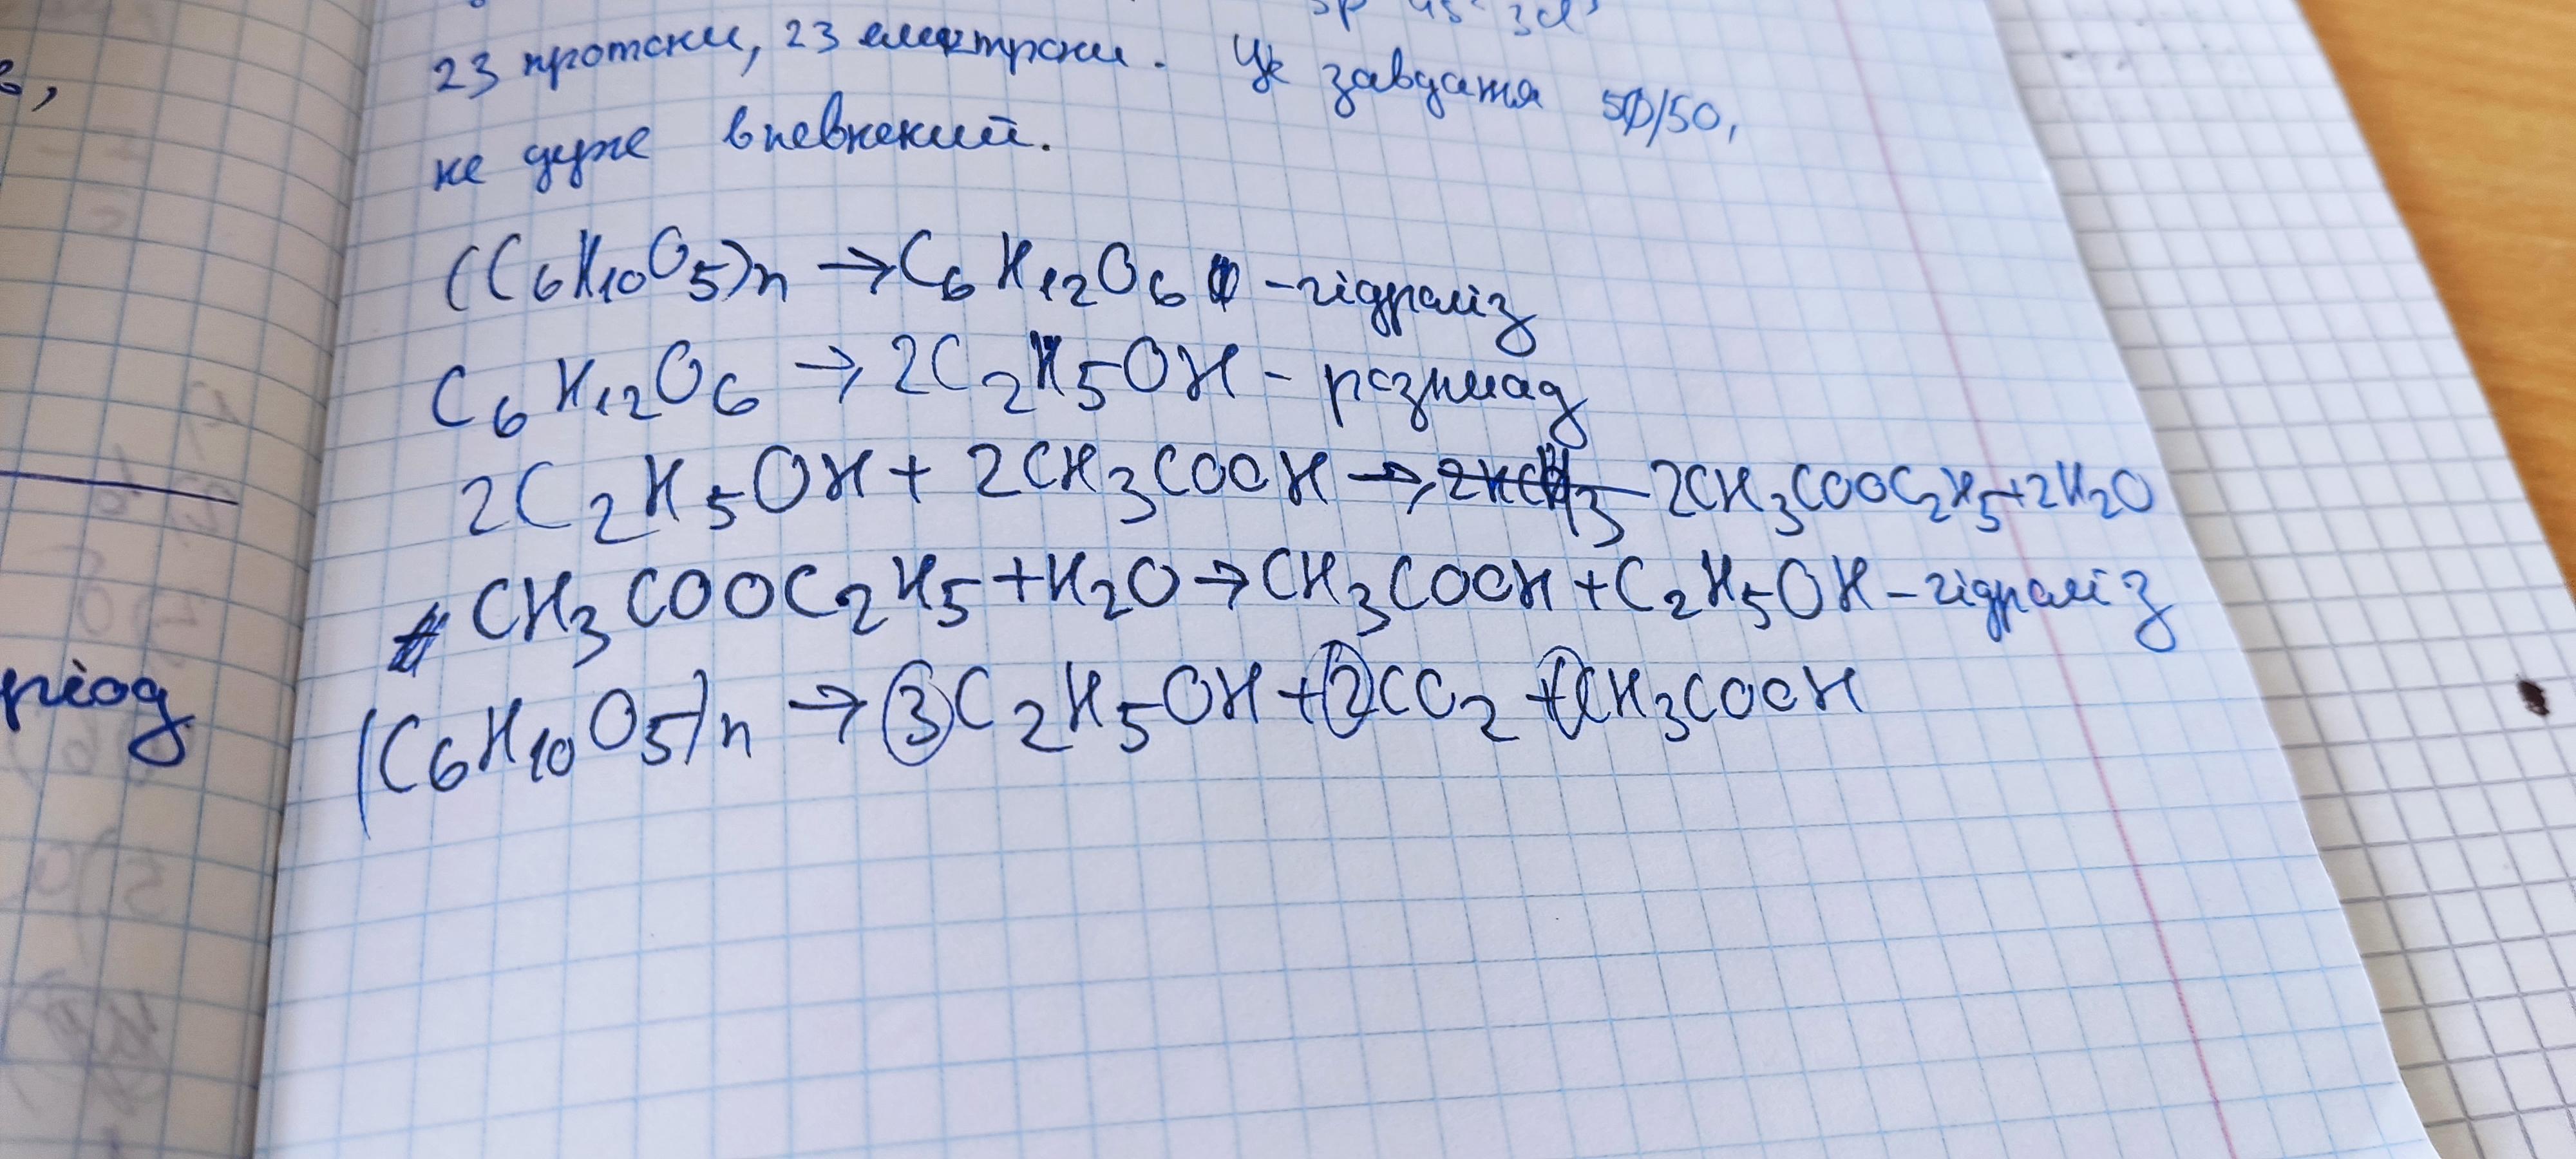 23 протони, 23 електрони. Це завдання 50/50,
не дуже впевнений.
(C6H10O5)n → C6H12O6 - гідроліз
C6H12O6 → 2C2H5OH - розклад
2C2H5OH + 2CH3COOH → 2CH3COOC2H5 + 2H2O
CH3COOC2H5 + H2O → CH3COOH + C2H5OH - гідроліз
(C6H10O5)n → 3C2H5OH + 2CO2 + CH3COOH
ріод